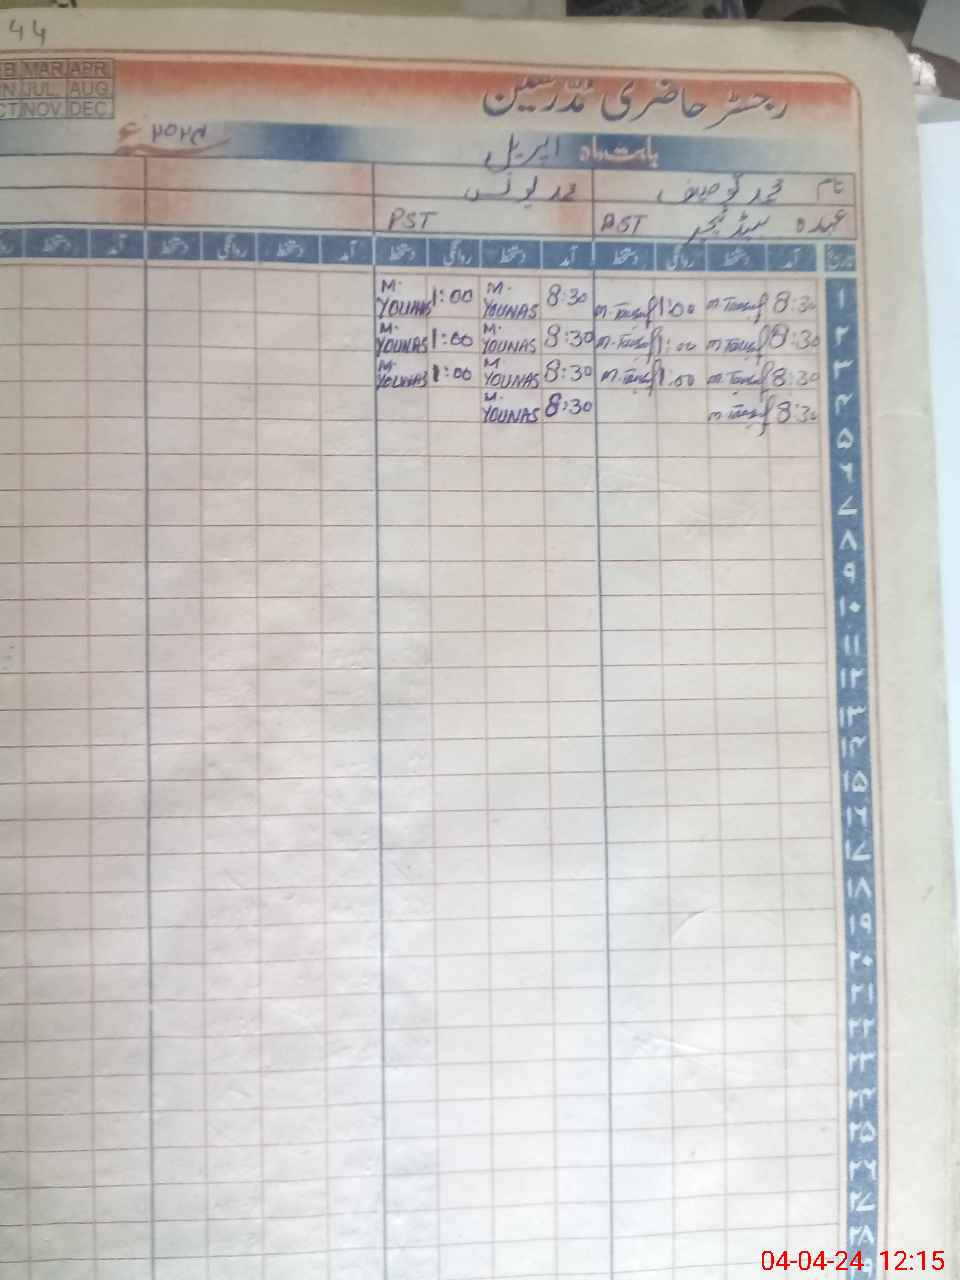 44
MAR APR
JUL. AUG
NOV DEC
رجسٹر حاضری مدرسین
بابت ماہ اپریل ۲۰۲۴ء
نام محمد توصیف محمد یونس
عہدہ ہیڈ ٹیچر PST
تاریخ آمد دستخط روانگی دستخط آمد دستخط روانگی دستخط آمد دستخط روانگی دستخط آمد دستخط
۱ 8:30 M. Tausif 1:00 M. Tausif 8:30 M. YOUNAS 1:00 M. YOUNAS
۲ 8:30 M. Tausif 1:00 M. Tausif 8:30 M. YOUNAS 1:00 M. YOUNAS
۳ 8:30 M. Tausif 1:00 M. Tausif 8:30 M. YOUNAS 1:00 M. YOUNAS
۴ 8:30 M. Tausif 8:30 M. YOUNAS
۵
۶
۷
۸
۹
۱۰
۱۱
۱۲
۱۳
۱۴
۱۵
۱۶
۱۷
۱۸
۱۹
۲۰
۲۱
۲۲
۲۳
۲۴
۲۵
۲۶
۲۷
۲۸
04-04-24 12:15